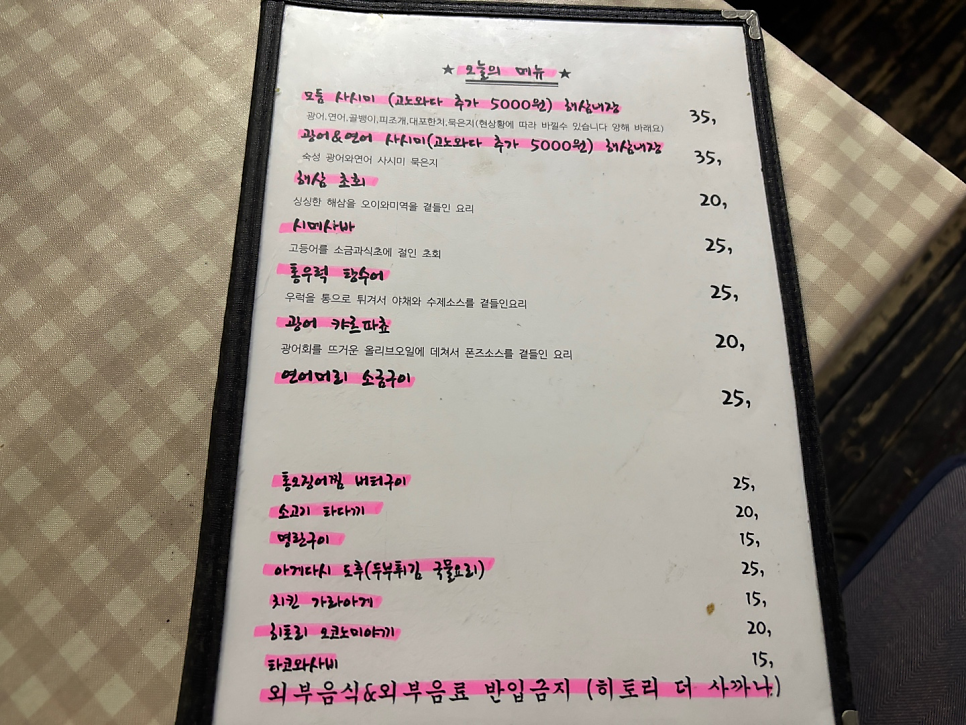 ★ 오늘의 메뉴 ★
모듬 사시미 (고노와다 추가 5000원) 해삼내장 35,
광어,연어,골뱅이,피조개,대포한치,묵은지(현상황에 따라 바뀔수 있습니다 양해 바래요)
광어&연어 사시미(고노와다 추가 5000원) 해삼내장 35,
숙성 광어와연어 사시미 묵은지
해삼 초회 20,
싱싱한 해삼을 오이와미역을 곁들인 요리
시메사바 25,
고등어를 소금과식초에 절인 초회
통우럭 탕수어 25,
우럭을 통으로 튀겨서 야채와 수제소스를 곁들인요리
광어 캬르파쵸 20,
광어회를 뜨거운 올리브오일에 데쳐서 폰즈소스를 곁들인 요리
연어머리 소금구이 25,
통오징어찜 버터구이 25,
소고기 타다끼 20,
명란구이 15,
아게다시 도후(두부튀김 국물요리) 25,
치킨 가라아게 15,
히토리 오코노미야끼 20,
타코와사비 15,
외부음식&외부음료 반입금지 (히토리 더 사까나)